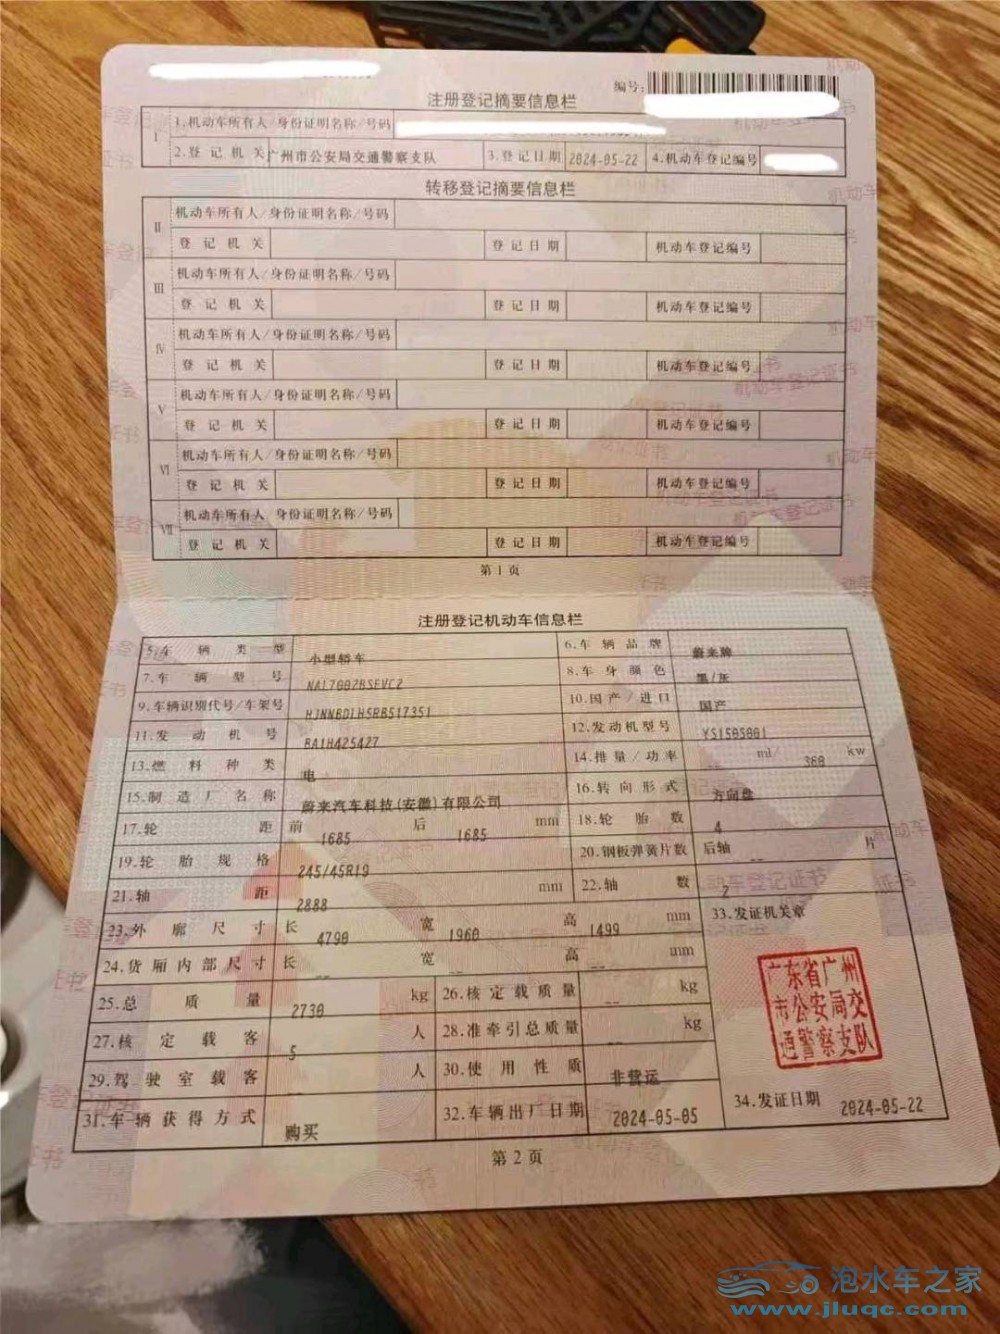 编号:
注册登记摘要信息栏
I 1.机动车所有人/身份证明名称/号码
2.登记机关 广州市公安局交通警察支队 3.登记日期 2024-05-22 4.机动车登记编号
转移登记摘要信息栏
II 机动车所有人/身份证明名称/号码
登记机关 登记日期 机动车登记编号
III 机动车所有人/身份证明名称/号码
登记机关 登记日期 机动车登记编号
IV 机动车所有人/身份证明名称/号码
登记机关 登记日期 机动车登记编号
V 机动车所有人/身份证明名称/号码
登记机关 登记日期 机动车登记编号
VI 机动车所有人/身份证明名称/号码
登记机关 登记日期 机动车登记编号
VII 机动车所有人/身份证明名称/号码
登记机关 登记日期 机动车登记编号
第1页
注册登记机动车信息栏
5.车辆类型 小型轿车 6.车辆品牌 蔚来牌
7.车辆型号 NA17002BSEVC2 8.车身颜色 黑/灰
9.车辆识别代号/车架号 HJNNBD1H5RB517351 10.国产/进口 国产
11.发动机号 RA1H425427 12.发动机型号 YS1505001
13.燃料种类 电 14.排量/功率 -- ml/ 360 kw
15.制造厂名称 蔚来汽车科技(安徽)有限公司 16.转向形式 方向盘
17.轮距 前 1685 后 1685 mm 18.轮胎数 4
19.轮胎规格 245/45R19 20.钢板弹簧片数 后轴 -- 片
21.轴距 2888 mm 22.轴数 2
23.外廓尺寸 长 4790 宽 1960 高 1499 mm 33.发证机关章
24.货厢内部尺寸 长 -- 宽 -- 高 -- mm
25.总质量 2730 kg 26.核定载质量 -- kg
27.核定载客 5 人 28.准牵引总质量 -- kg
29.驾驶室载客 -- 人 30.使用性质 非营运
31.车辆获得方式 购买 32.车辆出厂日期 2024-05-05 34.发证日期 2024-05-22
广东省广州
市公安局交
通警察支队
第2页
泡水车之家
www.jluqc.com